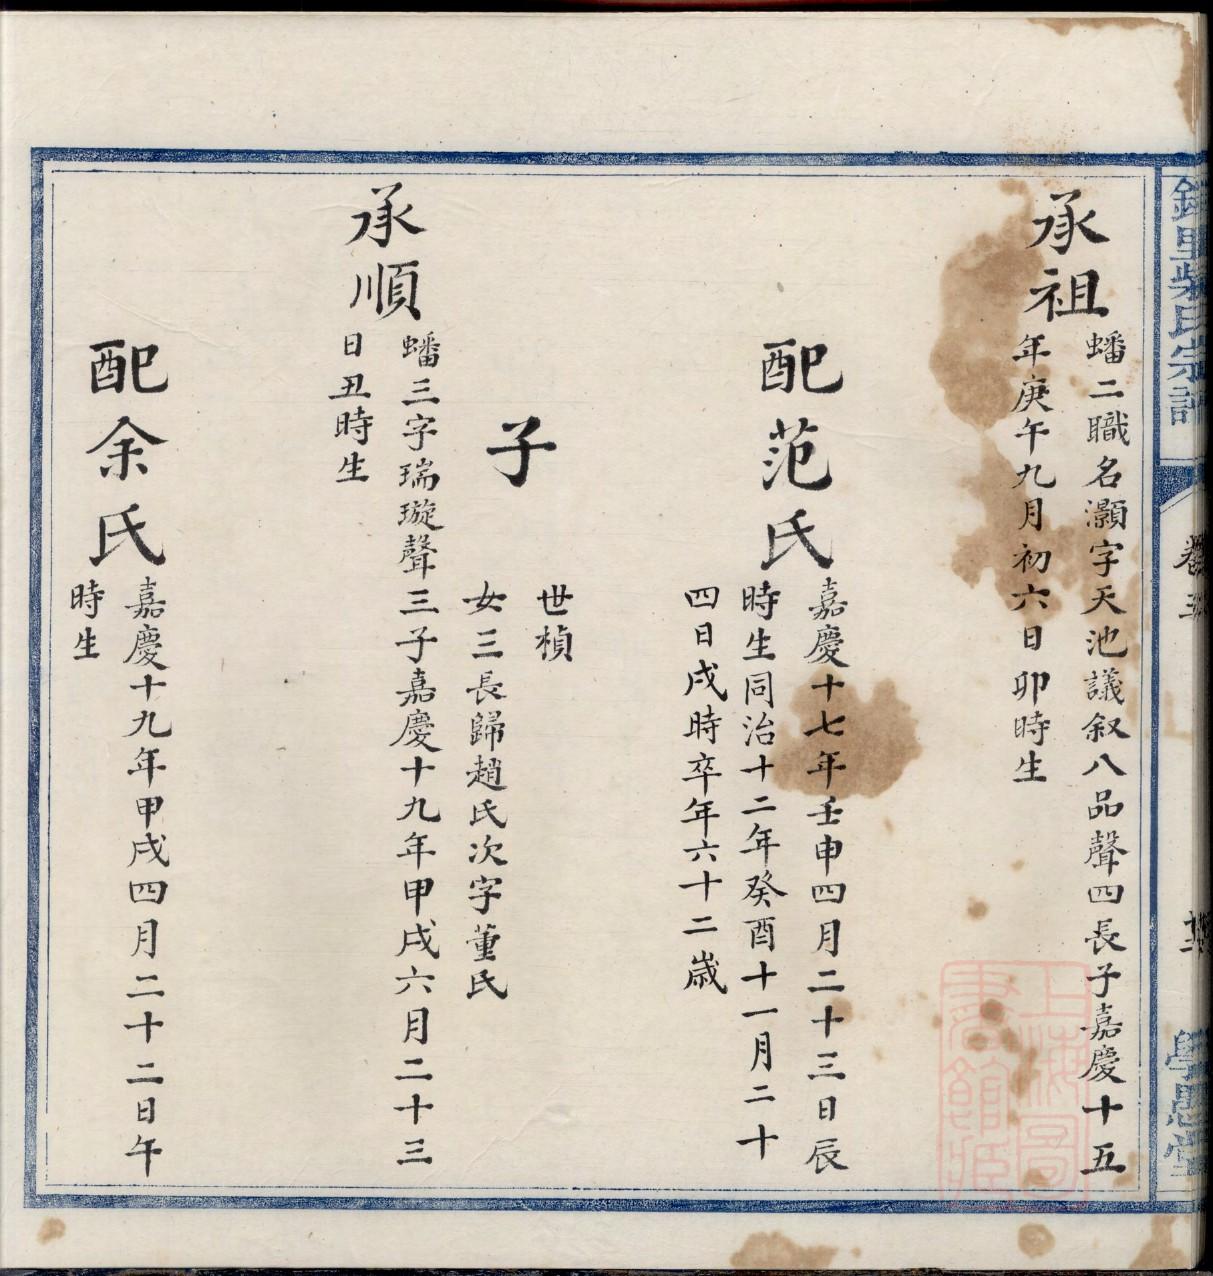 承祖
蟠二職名灝字天池議叙八品聲四長子嘉慶十五
年庚午九月初六日卯時生
配范氏
嘉慶十七年壬申四月二十三日辰
時生同治十二年癸酉十一月二十
四日戌時卒年六十二歲
子
世楨
女三長歸趙氏次字董氏
承順
蟠三字瑞璇聲三子嘉慶十九年甲戌六月二十三
日丑時生
配余氏
嘉慶十九年甲戌四月二十二日午
時生
里柴氏宗譜
卷三
學恩堂
上海圖
書館藏